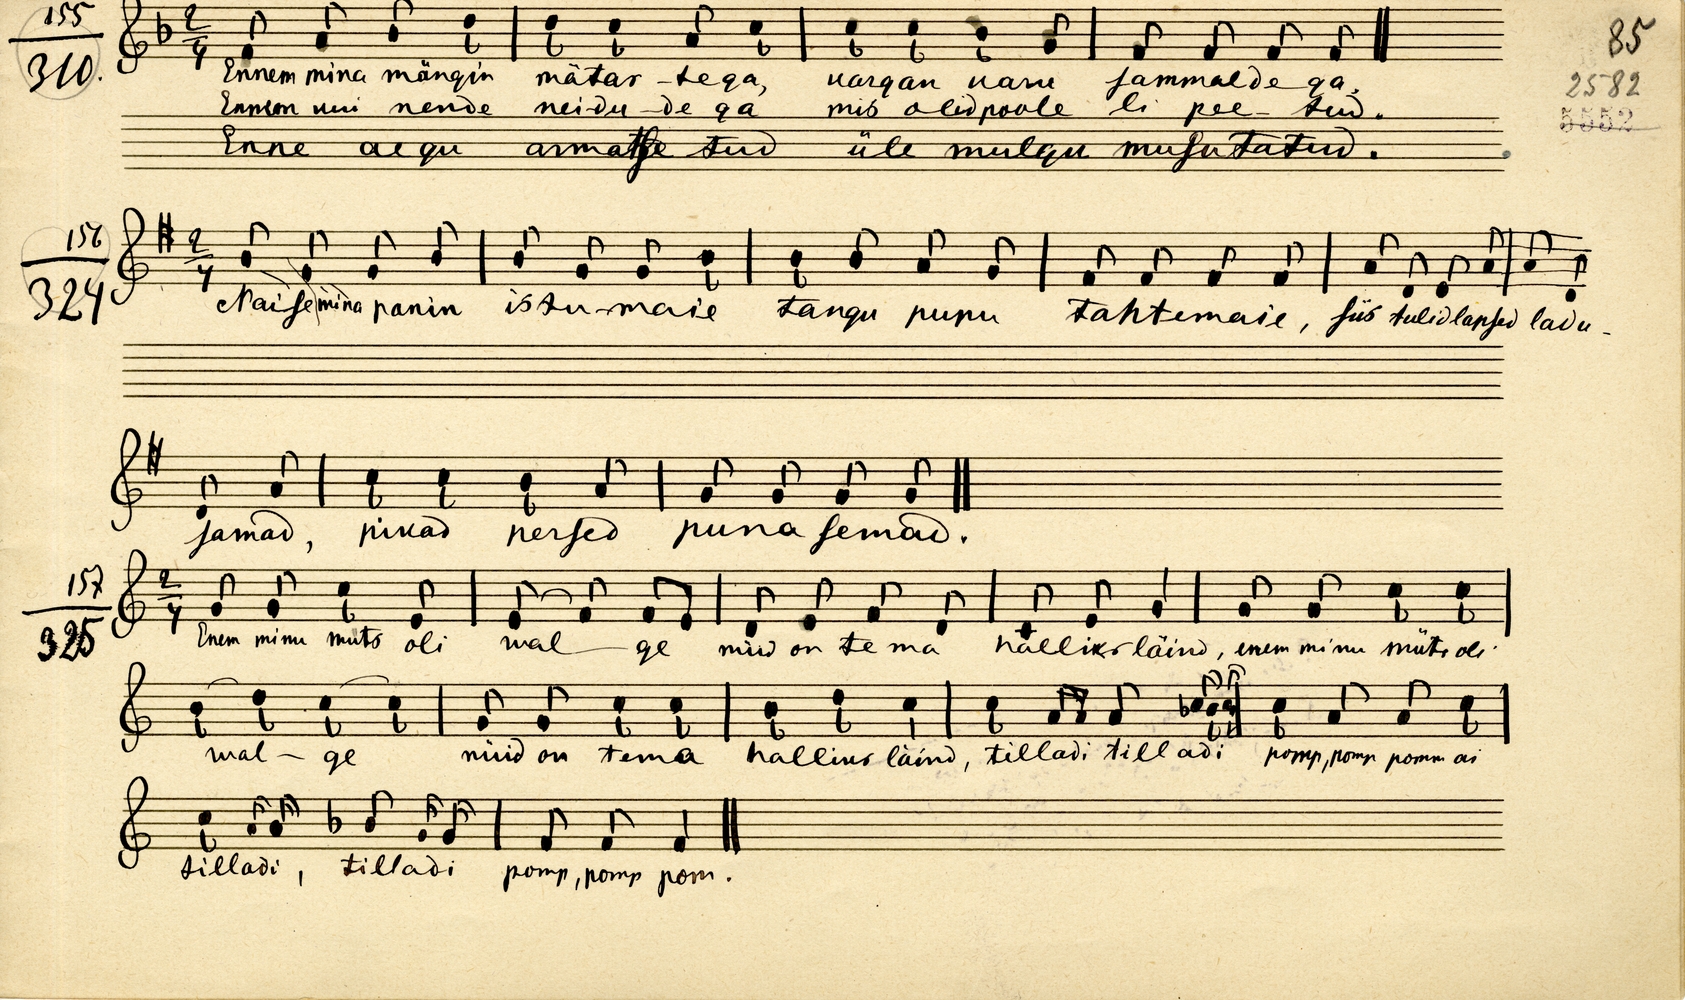 155
310.
85
2582
5552
2/4
Ennem mina mängin mätas-tega, vargan varu sammalde ga,
Ennem vui nende neidu-de ga mis olid poole li pee-tud.
Enne aegu armatse tud üle mulgu musutatud.
156
324
2/4
Naise mina panin istu-maie tangu pupu tahtemaie, siis tulid lapsed ladu-
samad, pikad persed puna semad.
157
325
2/4
Enem minu muts oli wal-ge nüid on te ma halliks läind, enem minu müts oli
wal-ge nüid on tema halliks läind, tilladi tilladi pomp, pomp pomm ai
tilladi, tilladi pomp, pomp pom.